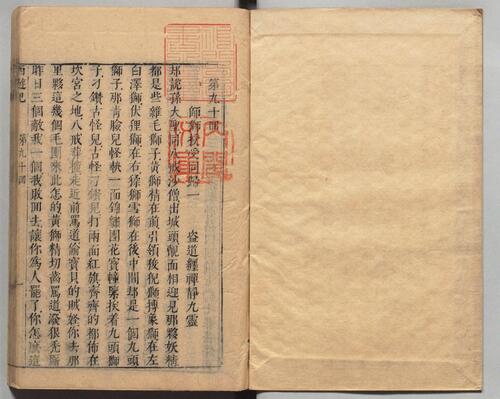 第九十回
師獅授受同歸一　盜道纏禪靜九靈
却說孫大聖同八戒沙僧出城頭覿面相迎見那夥妖精
都是些雜毛獅子黃獅精在前引領狻猊獅摶象獅在左
白澤獅伏狸獅在右猱獅雪獅在後中間却是一個九頭
獅子那青臉兒怪執一面錦綉團花寶幢緊挨着九頭獅
子刁鑽古怪兒古怪刁鑽兒打兩面紅旗齊齊的都佈在
坎宮之地八戒莽撞走近前罵道偷寶貝的賊怪你去那
里夥這幾個毛團來此怎的黃獅精切齒罵道潑狠禿廝
昨日三個敵我一個我敗回去讓你為人罷了你怎麼這
西遊記　第九十回